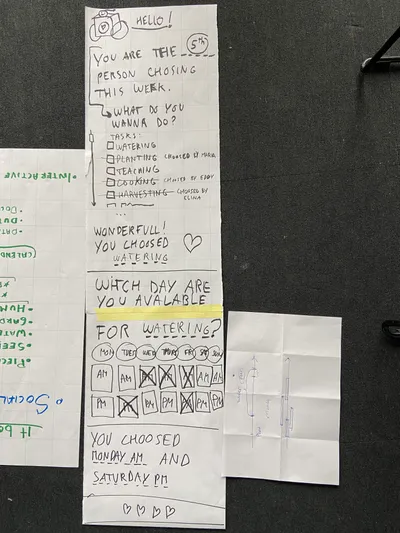 HELLO!
YOU ARE THE 5TH
PERSON CHOSING
THIS WEEK.
WHAT DO YOU
WANNA DO?
TASKS:
WATERING
PLANTING CHOOSED BY MARIA
TEACHING
COOKING CHOOSED BY EDDY
HARVESTING CHOOSED BY ELINA
...
WONDERFULL!
YOU CHOOSED
WATERING
WITCH DAY ARE
YOU AVALABLE
FOR WATERING?
MON TUES WED THURS FRI SAT SUN
AM AM AM AM AM AM AM
PM PM PM PM PM PM PM
YOU CHOOSED
MONDAY AM AND
SATURDAY PM
INTERACTIVE
SOCIAL